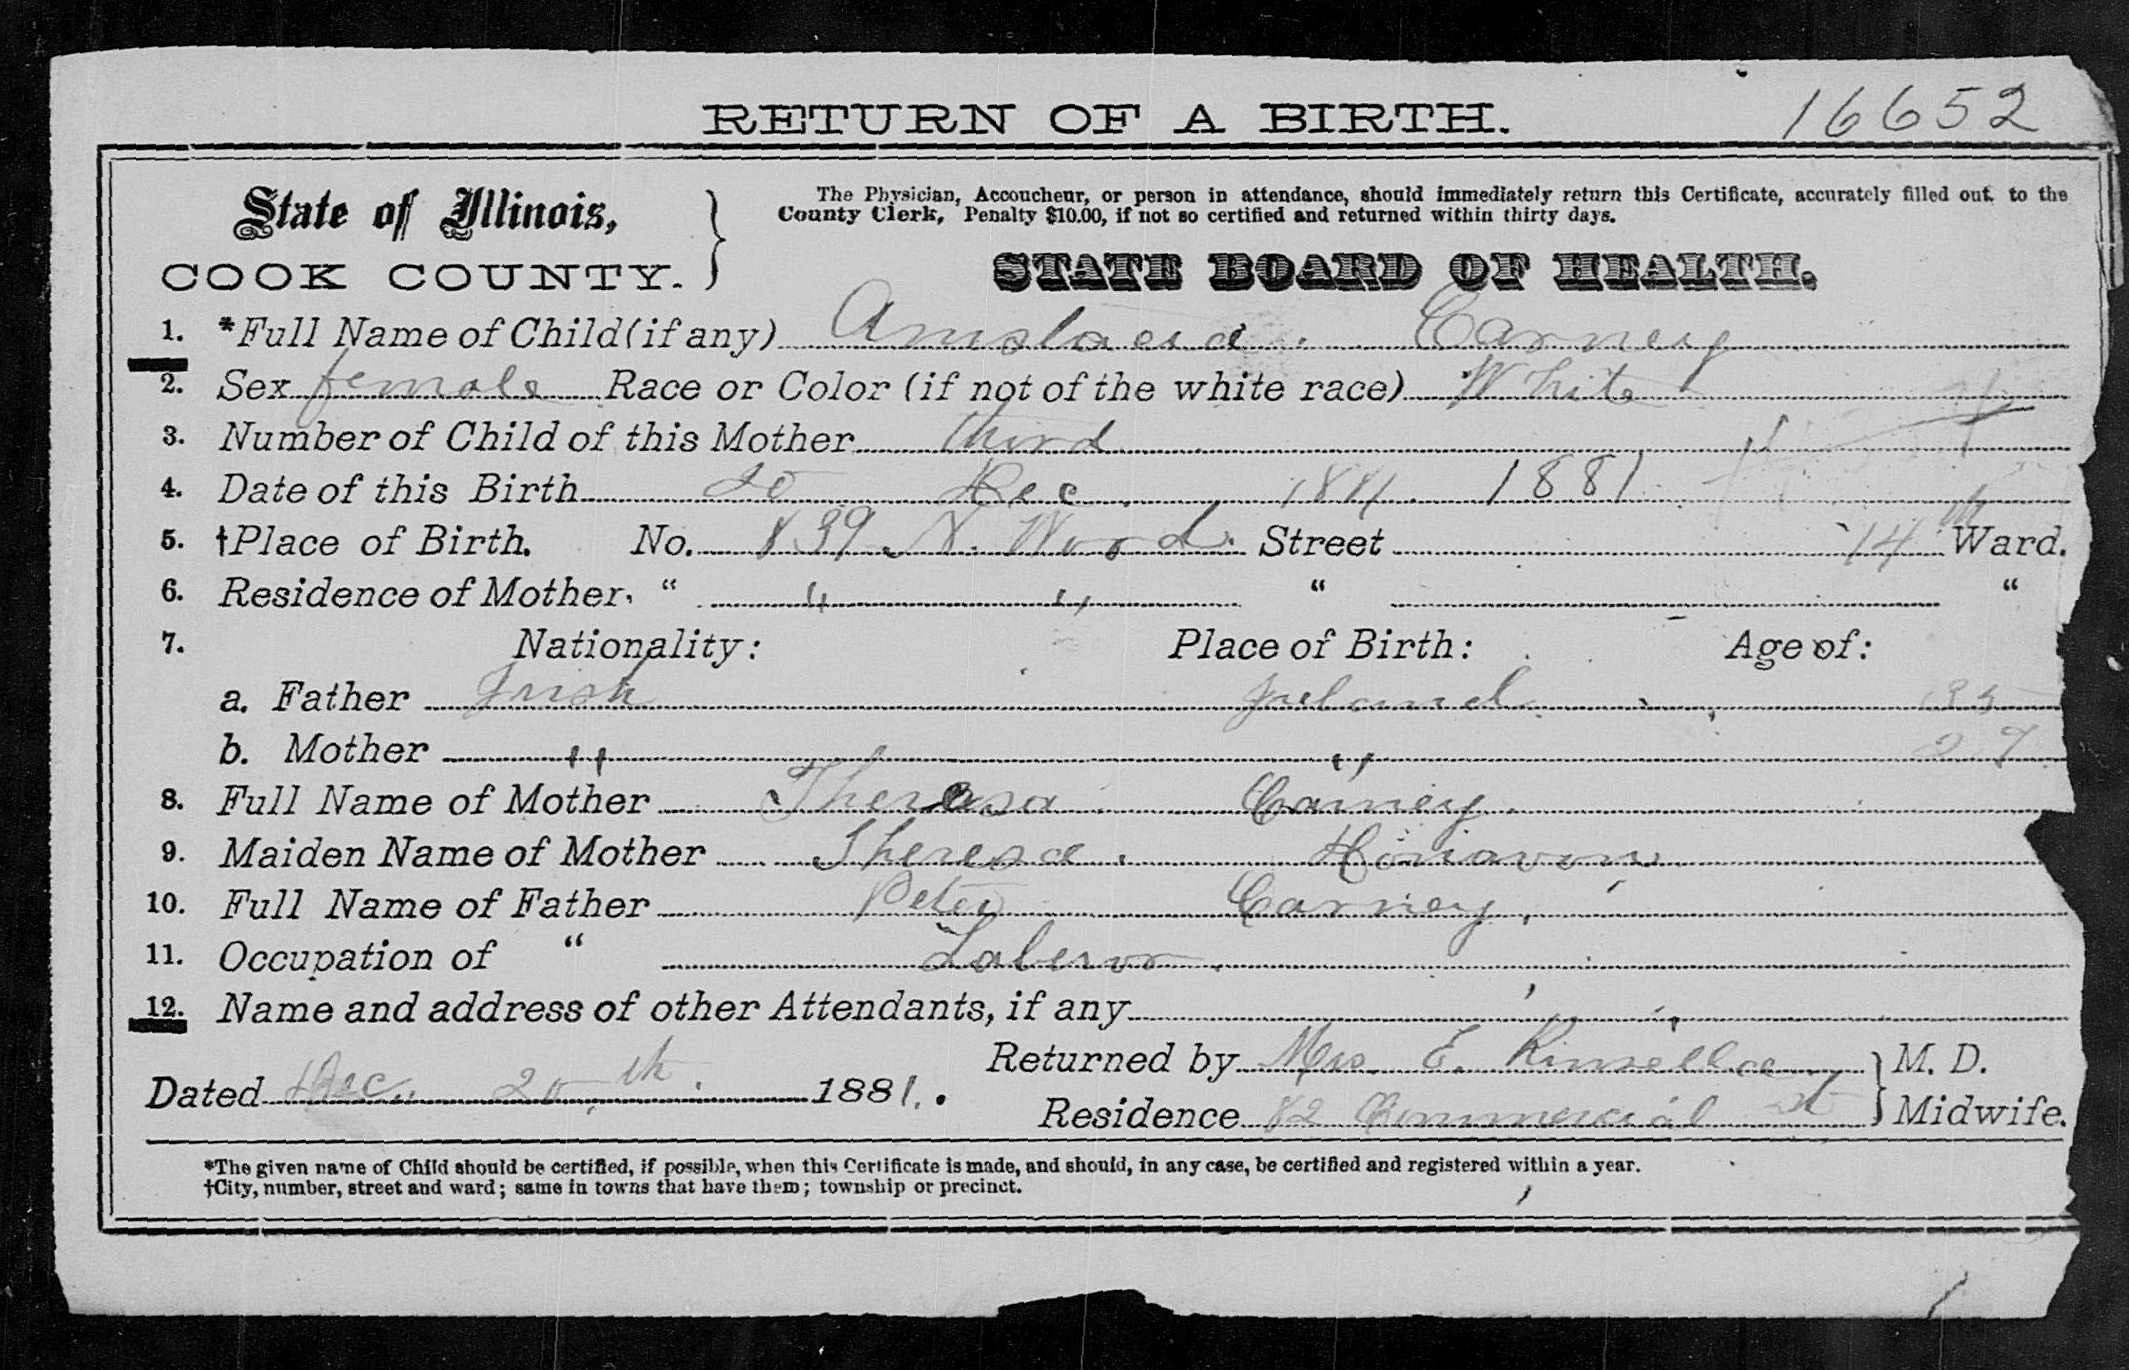 RETURN OF A BIRTH. 16652
The Physician, Accoucheur, or person in attendance, should immediately return this Certificate, accurately filled out, to the
County Clerk, Penalty $10.00, if not so certified and returned within thirty days.
State of Illinois,
COOK COUNTY. }
STATE BOARD OF HEALTH.
1. *Full Name of Child (if any) Carney
2. Sex female Race or Color (if not of the white race) White
3. Number of Child of this Mother third
4. Date of this Birth 20 Dec 1881 1881
5. †Place of Birth. No. 839 N. Wood Street 14th Ward.
6. Residence of Mother, " " " " "
7. Nationality: Place of Birth: Age of:
a. Father Irish Ireland 35
b. Mother " " 27
8. Full Name of Mother Theresa Carney
9. Maiden Name of Mother Theresa
10. Full Name of Father Peter Carney
11. Occupation of "
12. Name and address of other Attendants, if any
Returned by Mrs. E. Kinsella } M. D.
Dated Dec. 20th 1881.
Residence 82 Commercial st } Midwife.
*The given name of Child should be certified, if possible, when this Certificate is made, and should, in any case, be certified and registered within a year.
†City, number, street and ward; same in towns that have them; township or precinct.